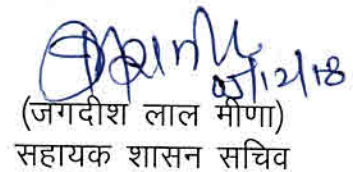 05/12/18
(जगदीश लाल मीणा)
सहायक शासन सचिव